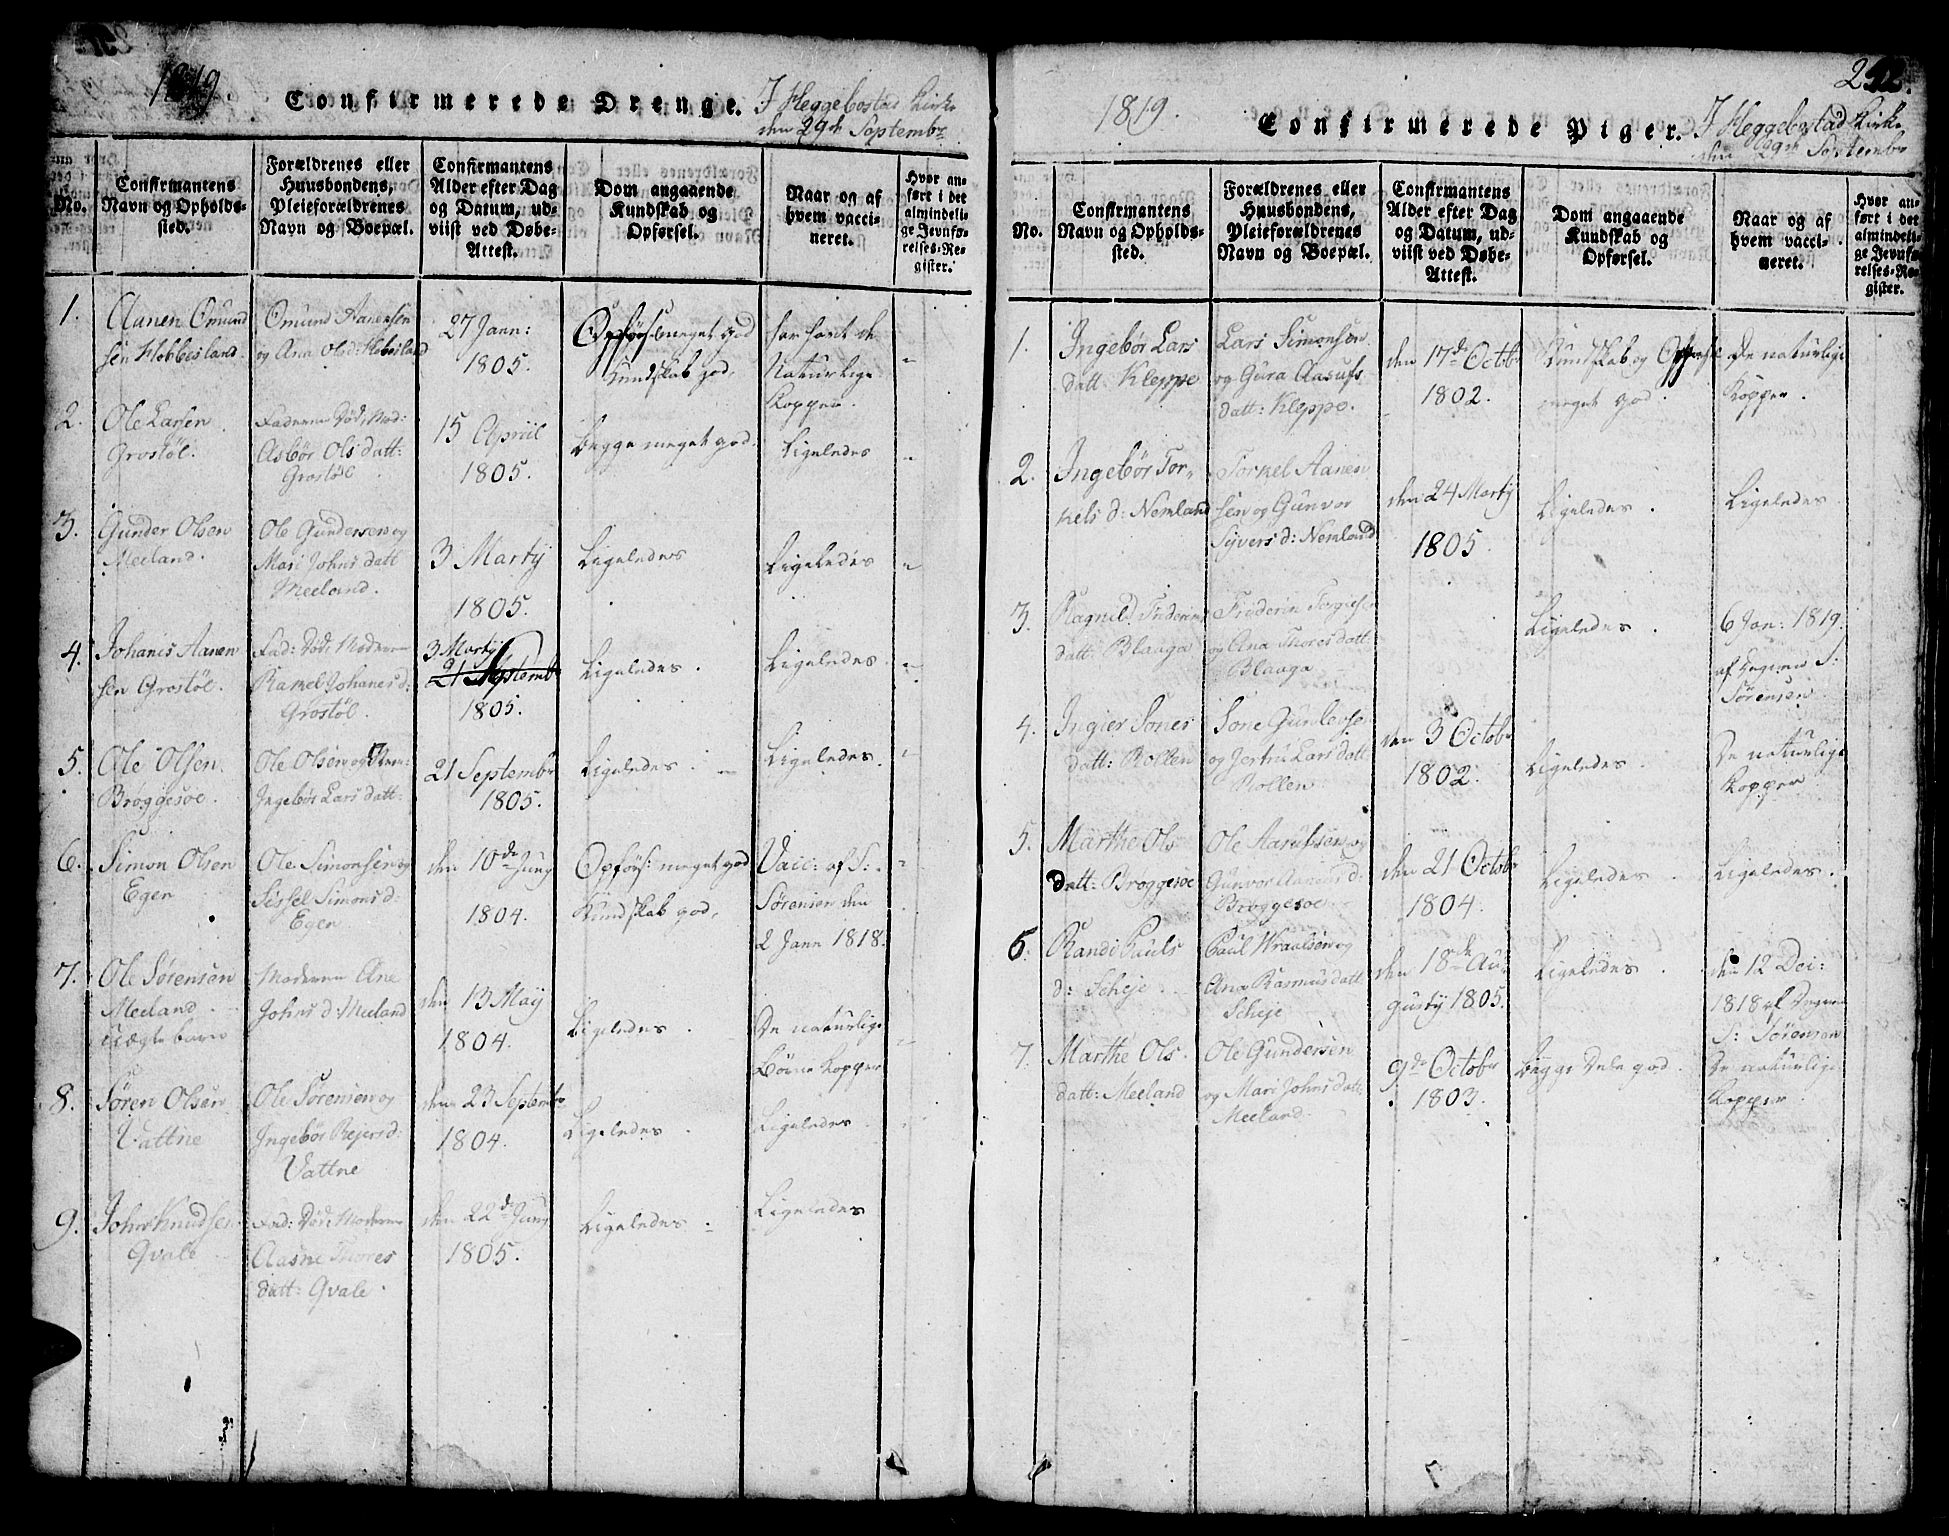 1819.
Confirmerede Drenge.
I Heggebostad Kirke
den 29de Septembr
No.
Confirmantens
Navn og Opholds-
sted.
Forældrenes eller
Huusbondens,
Pleieforældrenes
Navn og Boepæl.
Confirmantens
Alder efter Dag
og Datum, ud-
viist ved Døbe-
Attest.
Dom angaaende
Kundskab og
Opførsel.
Naar og af
hvem vacci-
neret.
Hvor an-
ført i det
almindeli-
ge Jevnfø-
relses-Re-
gister.
1.
Aanen Omund
sen Hobbesland
Omund Aanensen
og Ana Olsd:
27 Jann:
1805.
Opførsel meget god
Kundskab god,
har havt de
Naturlige
Kopper.
2.
Ole Larsen
Grostøl.
Faderen Død, Mod:
Asbør Ols datt:
Grostøl
15 Apriil
1805.
Begge meget god.
Ligeledes
3.
Gunder Olsen
Meeland.
Ole Gundersen og
Mari Johns datt
Meeland.
3 Martij
1805.
Ligeledes
Ligeledes
4.
Johanis Aanen
sen Grostøl.
Fad: Død: Moderen
Rakel Johanes d:
Grostøl.
3 Martij
21 Septemb
1805.
Ligeledes.
Ligeledes.
5.
Ole Olsen
Brøggesoe.
Ole Olsen og
Ingebør Lars datt:
21 Septembr
1805.
Ligeledes.
Ligeledes.
6.
Simon Olsen
Egen
Ole Simonsen og
Sissel Simons d:
Egen
den 10de Juny
1804.
Opførs: meget god
Kundskab god,
Vacc: af S:
Sørensen den
2 Jann 1818.
7.
Ole Sørensen
Meeland
uægte barn
Moderen Ane
Johns d: Meeland
den 13 May
1804.
Ligeledes.
De naturlige
Børne Kopper
8.
Søren Olsen
Vattne
Ole Sørensen og
Ingebør Rejers d:
Vattne
den 23 Septembr
1804.
Ligeledes.
Ligeledes
9.
John Knudsen
Qvale
Fad: Død: Moderen
Aasne Thores
datt: Qvale.
den 22de Juny
1805.
Ligeledes.
Ligeledes
1819.
Confirmerede Piger.
I Heggebostad Kirke
den 29de Septembr
No.
Confirmantens
Navn og Opholds-
sted.
Forældrenes eller
Huusbondens,
Pleieforældrenes
Navn og Boepæl.
Confirmantens
Alder efter Dag
og Datum, ud-
viist ved Døbe-
Attest.
Dom angaaende
Kundskab og
Opførsel.
Naar og af
hvem vacci-
neret.
Hvor an-
ført i det
almindeli-
ge Jevnfø-
relses-Re-
gister.
1.
Ingebør Lars
datt: Kleppe
Lars Simonsen
og Gura Aasufs
datt: Kleppe.
den 17de Octbr
1802.
Kundskab og Opførsel
meget god.
De naturlige
Kopper.
2.
Ingebør Tor-
kels d: Nemland
Torkel Aanen
sen og Gunvor
Syvers d: Nemland
den 24 Martij
1805.
Ligeledes.
Ligeledes
3.
Ragnild
datt: Blaaga
og Ana Thores datt:
Blaaga
Ligeledes.
6 Jan: 1819.
af S:
Sørensen
4.
Ingier Tones
datt: Rollen
Tone Gunlevse
og Jertru Lars datt
Rollen
den 3 Octobr
1802.
Ligeledes.
De naturlige
Kopper
5.
Marthe Ols
datt: Brøggesoe
Ole Aanensen og
Gunvor Aanens d:
Brøggesoe
den 21 Octobr
1804.
Ligeledes.
Ligeledes.
6.
Randi Pauls
d: Scheje
Paul Wraalsen og
Ana Rasmus datt
Scheje
den 18de Au-
gusty 1805.
Ligeledes.
den 12 Dec:
1818 af
S: Sørensen
7.
Marthe Ols
datt: Meeland
Ole Gundersen
og Mari Johns datt
Meeland
9de Octobr
1803.
Begge Dele god.
De naturlige
Kopper.